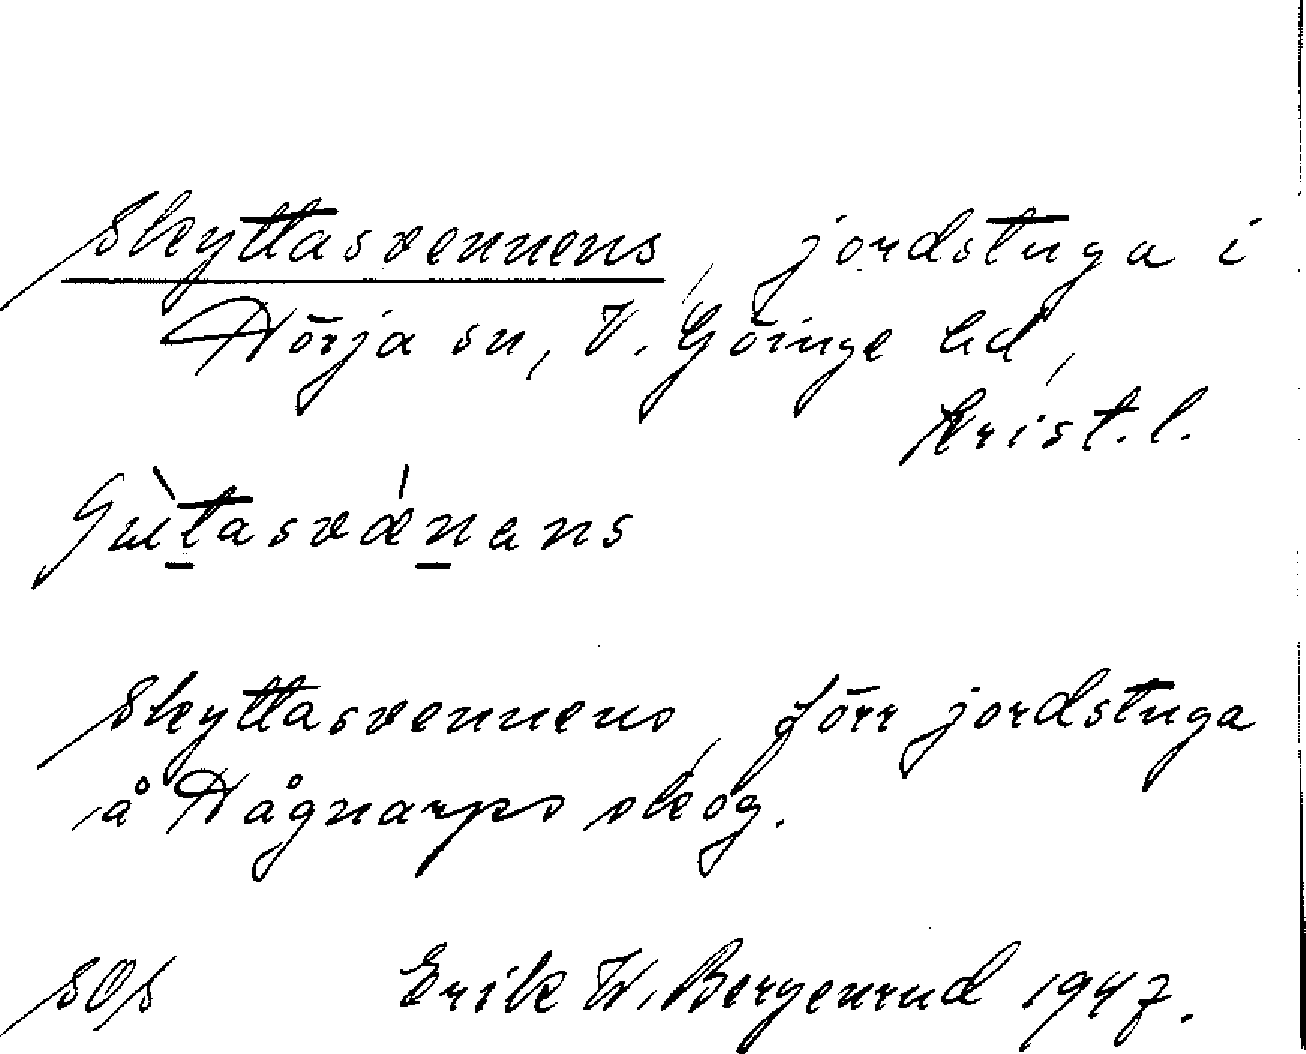 Skyttasvennens, jordstuga i
Nörja sn, V. Göinge hd,
Krist. l.
Skyttasvennens, förr jordstuga
å Hågnarps skog.
SOS Erik W. Bergenrud 1947.